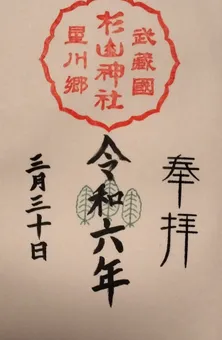 奉拝
武蔵國
杉山神社
星川郷
令和六年
三月三十日